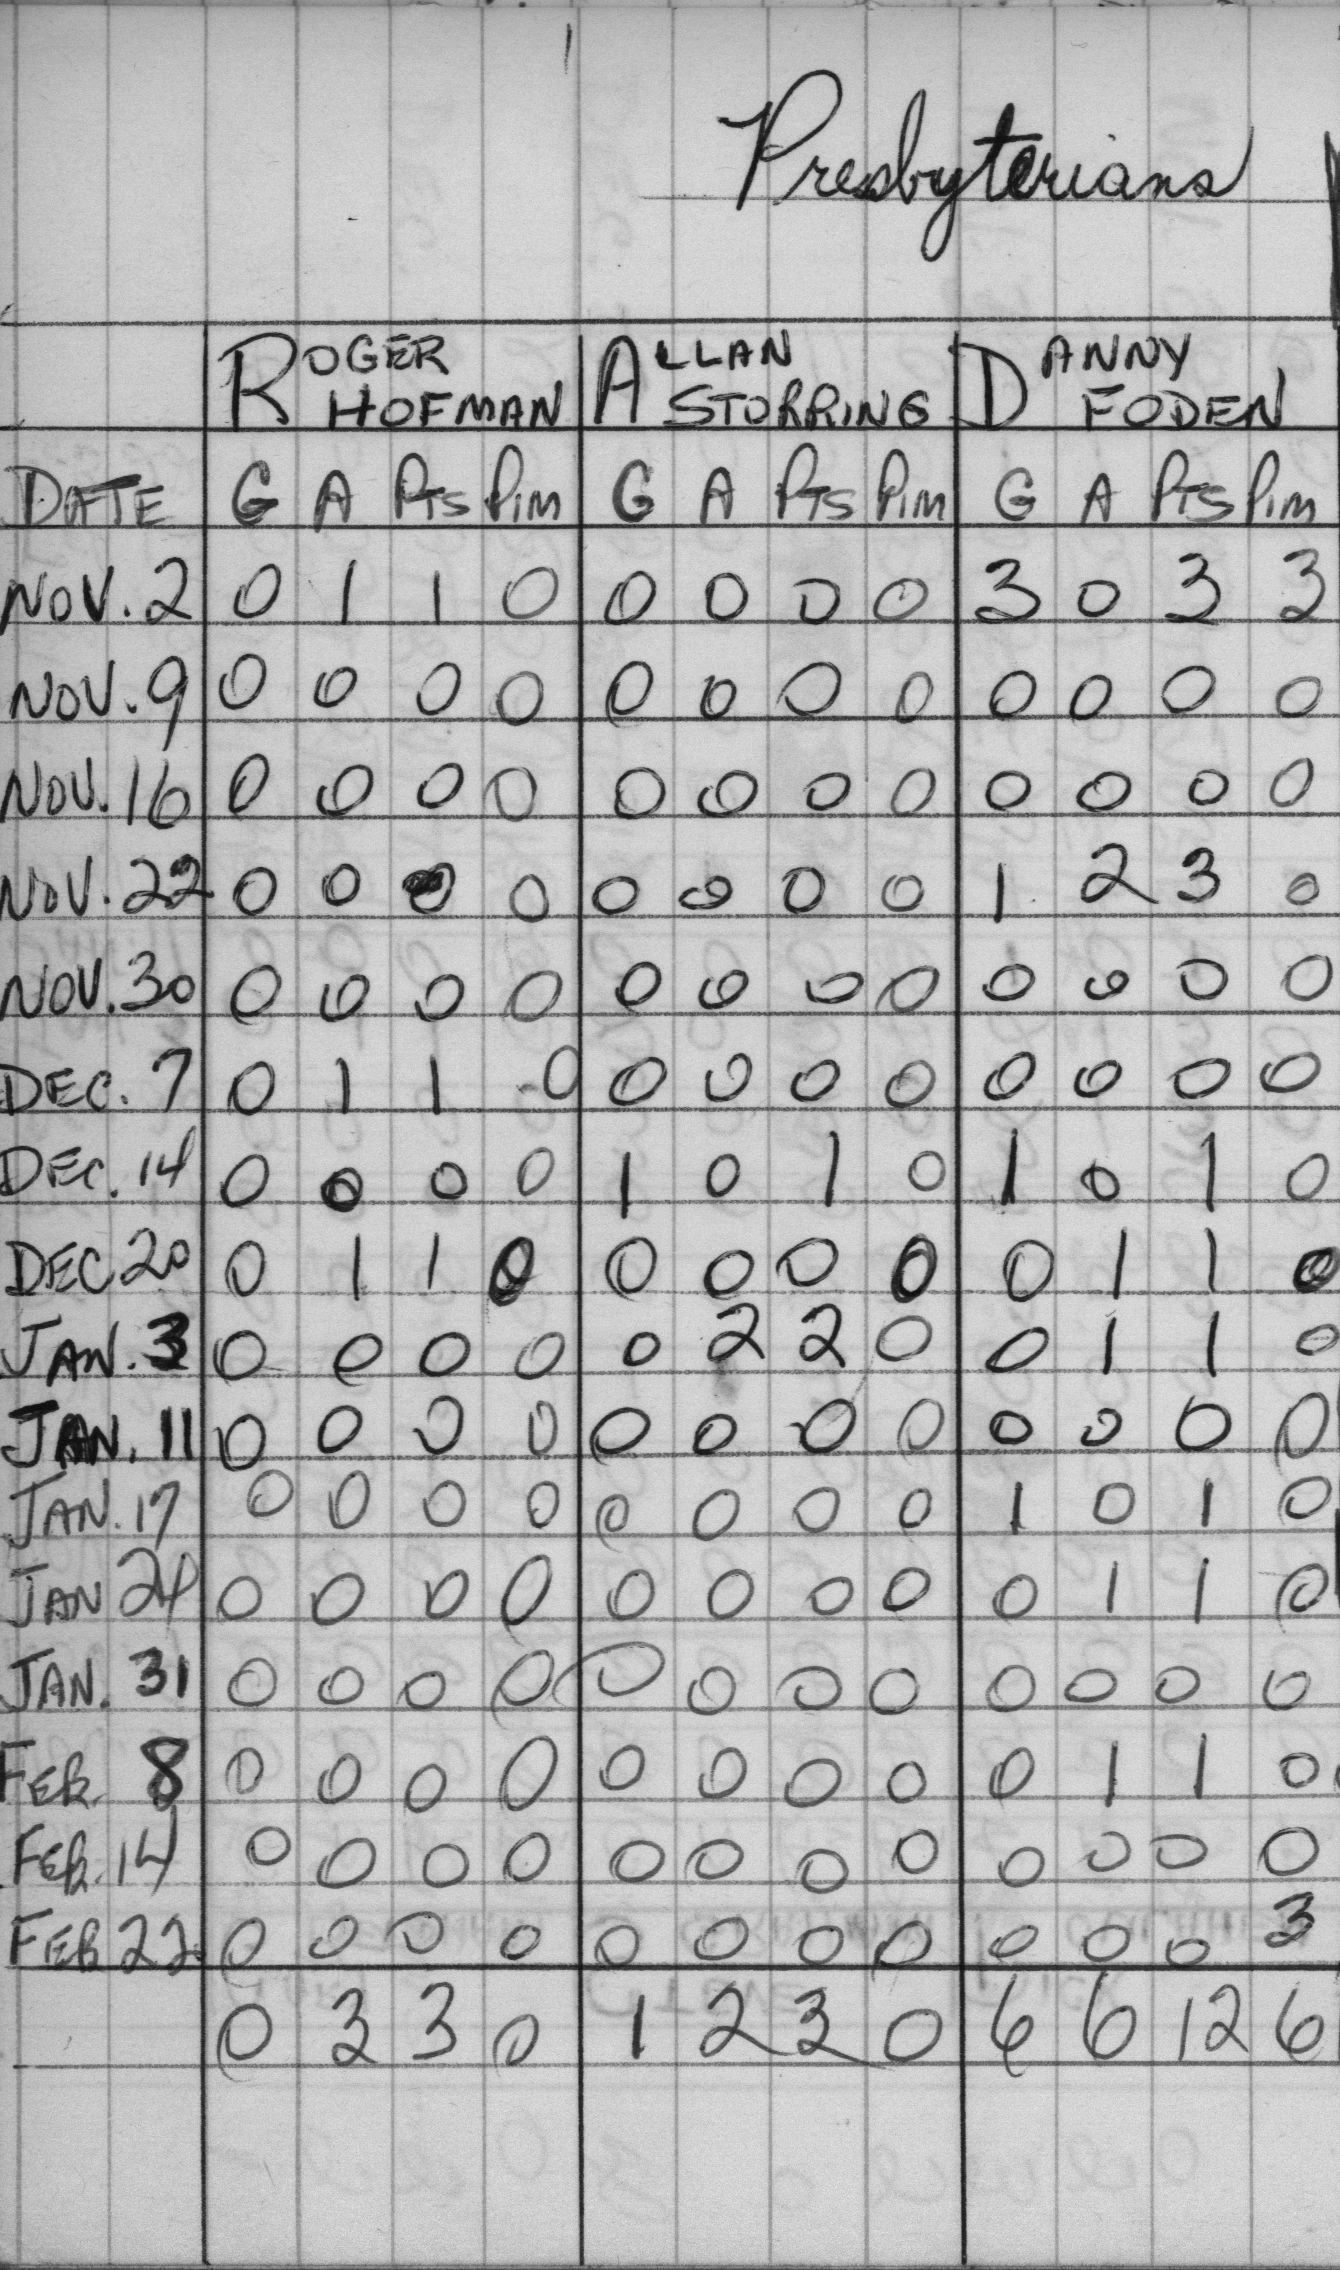 Presbyterians
ROGER HOFMAN ALLAN STORRING DANNY FODEN
DATE G A PTS PIM G A PTS PIM G A PTS PIM
NOV. 2 0 1 1 0 0 0 0 0 3 0 3 3
NOV. 9 0 0 0 0 0 0 0 0 0 0 0 0
NOV. 16 0 0 0 0 0 0 0 0 0 0 0 0
NOV. 22 0 0 0 0 0 0 0 0 1 2 3 0
NOV. 30 0 0 0 0 0 0 0 0 0 0 0 0
DEC. 7 0 1 1 0 0 0 0 0 0 0 0 0
DEC. 14 0 0 0 0 1 0 1 0 1 0 1 0
DEC 20 0 1 1 0 0 0 0 0 0 1 1 0
JAN. 3 0 0 0 0 0 2 2 0 0 1 1 0
JAN. 11 0 0 0 0 0 0 0 0 0 0 0 0
JAN. 17 0 0 0 0 0 0 0 0 1 0 1 0
JAN 24 0 0 0 0 0 0 0 0 0 1 1 0
JAN. 31 0 0 0 0 0 0 0 0 0 0 0 0
FEB. 8 0 0 0 0 0 0 0 0 0 1 1 0
FEB. 14 0 0 0 0 0 0 0 0 0 0 0 0
FEB 22 0 0 0 0 0 0 0 0 0 0 0 3
0 3 3 0 1 2 3 0 6 6 12 6